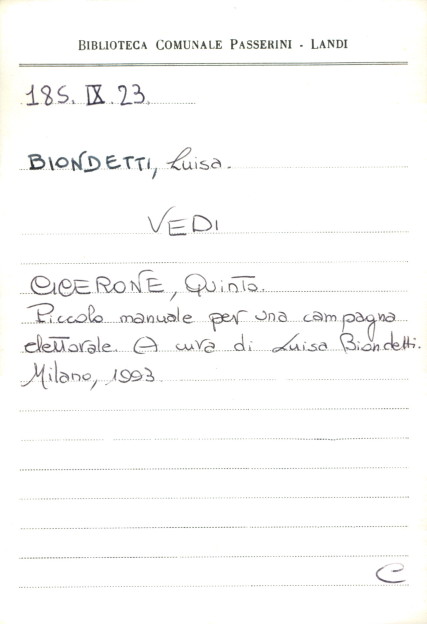 BIBLIOTECA COMUNALE PASSERINI - LANDI
185. IX. 23.
BIONDETTI, Luisa.
VEDI
CICERONE, Quinto.
Piccolo manuale per una campagna
elettorale. A cura di Luisa Biondetti.
Milano, 1993
C